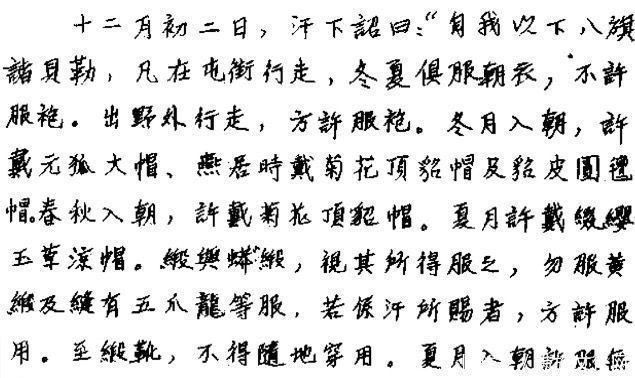 十二月初二日，汗下詔曰：“自我以下八旗
諸貝勒，凡在屯街行走，冬夏俱服朝衣，不許
服袍。出野外行走，方許服袍。冬月入朝，許
戴元狐大帽、燕居時戴菊花頂貂帽及貂皮圓
帽。春秋入朝，許戴菊花頂貂帽。夏月許戴綴纓
玉草涼帽。緞與蟒緞，視其所得服之，勿服黄
緞及縫有五爪龍等服，若係汗所賜者，方許服
用。至緞靴，不得隨地穿用。夏月入朝許服